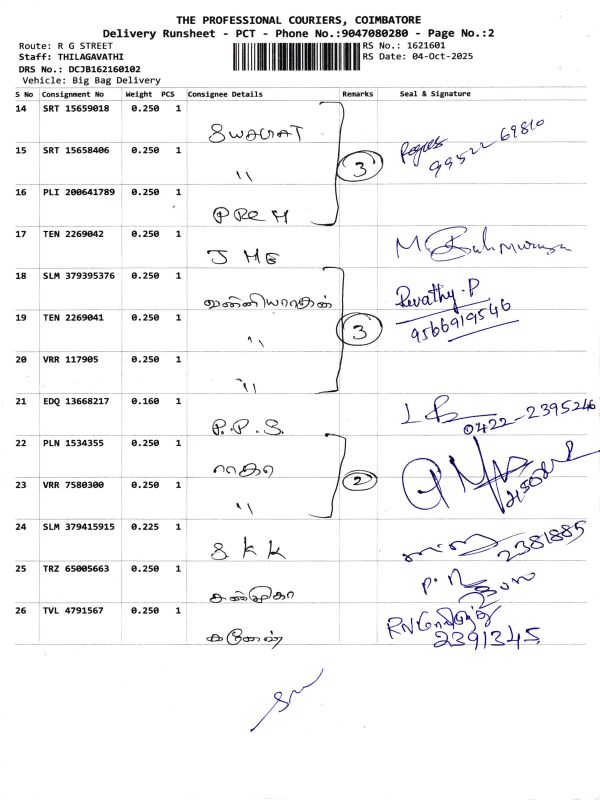 THE PROFESSIONAL COURIERS, COIMBATORE
Delivery Runsheet - PCT - Phone No.:9047080280 - Page No.:2
Route: R G STREET
RS No.: 1621601
Staff: THILAGAVATHI
RS Date: 04-Oct-2025
DRS No.: DCJB162160102
Vehicle: Big Bag Delivery
S No Consignment No Weight PCS Consignee Details Remarks Seal & Signature
14 SRT 15659018 0.250 1 SWAGAT
15 SRT 15658406 0.250 1 " 3 99522 69810
16 PLI 200641789 0.250 1 PREM
17 TEN 2269042 0.250 1 J M E
18 SLM 379395376 0.250 1 Revathy.P
19 TEN 2269041 0.250 1 " 3 9566919546
20 VRR 117905 0.250 1 "
21 EDQ 13668217 0.160 1 P.P.S. 0422-2395246
22 PLN 1534355 0.250 1 ராகா
23 VRR 7580300 0.250 1 " 2
24 SLM 379415915 0.225 1 S K K 2381885
25 TRZ 65005663 0.250 1 சண்முகா
26 TVL 4791567 0.250 1 2391345